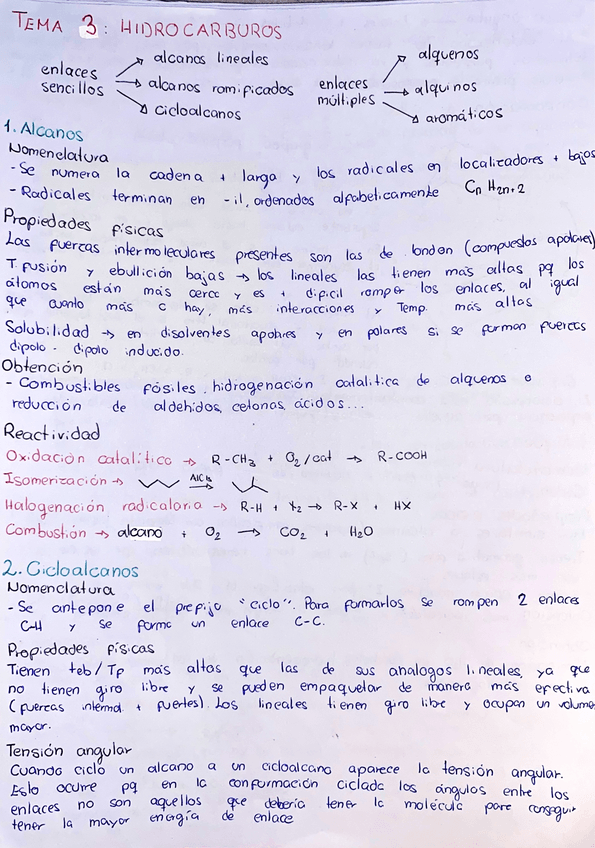 TEMA 3: HIDROCARBUROS
enlaces sencillos → alcanos lineales
→ alcanos ramificados
→ cicloalcanos
enlaces múltiples → alquenos
→ alquinos
→ aromáticos
1. Alcanos
Nomenclatura
- Se numera la cadena + larga y los radicales en localizadores + bajos
- Radicales terminan en -il, ordenados alfabeticamente CnH2n+2
Propiedades físicas
Las fuerzas intermoleculares presentes son las de london (compuestos apolares)
T fusión y ebullición bajas → los lineales las tienen más altas pq los
átomos están más cerca y es + dificil romper los enlaces, al igual
que cuanto más C hay, más interacciones y Temp. más altas
Solubilidad → en disolventes apolares y en polares si se forman fuerzas
dipolo - dipolo inducido.
Obtención
- Combustibles fósiles, hidrogenación catalítica de alquenos o
reducción de aldehídos, cetonas, ácidos...
Reactividad
Oxidación catalítica → R-CH3 + O2/cat → R-COOH
Isomerización → AlCl3 →
Halogenación radicalaria → R-H + X2 → R-X + HX
Combustión → alcano + O2 → CO2 + H2O
2. Cicloalcanos
Nomenclatura
- Se antepone el prefijo "ciclo". Para formarlos se rompen 2 enlaces
C-H y se forma un enlace C-C.
Propiedades físicas
Tienen teb/Tf más altas que las de sus analogos lineales, ya que
no tienen giro libre y se pueden empaquetar de manera más efectiva
(fuerzas intermol. + fuertes). Los lineales tienen giro libre y ocupan un volumen
mayor.
Tensión angular
Cuando ciclo un alcano a un cicloalcano aparece la tensión angular.
Esto ocurre pq en la conformación ciclada los ángulos entre los
enlaces no son aquellos que debería tener la molécula para conseguir
tener la mayor energía de enlace